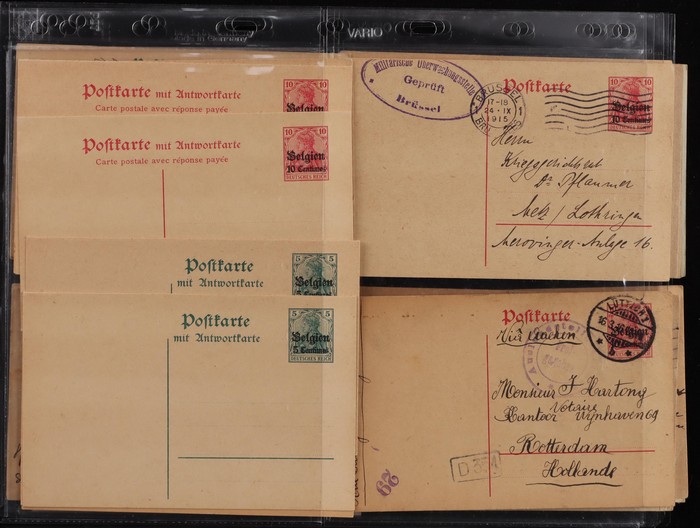 VARIO
10 10
Postkarte mit Antwortkarte
Carte postale avec réponse payée
Belgien
10 10
Postkarte mit Antwortkarte
Carte postale avec réponse payée
Belgien
10 Centimes
DEUTSCHES REICH
5 5
Postkarte
mit Antwortkarte
Belgien
5 5
Postkarte
mit Antwortkarte
Belgien
5 Centimes
DEUTSCHES REICH
Militärische Überwachungsstelle
Geprüft
Brüssel
BRÜSSEL
17-18
24 · IX
1915
1
Postkarte
10 10
Belgien
10 Centimes
DEUTSCHES REICH
Herrn
Kriegsgerichtsrat
Dr Pflaumer
Metz / Lothringen
Merovinger-Anlage 16.
Postkarte
Via Aachen
LÜTTICH 1
Monsieur J Hartong
Notaire
Kantoor Wijnhaven 69
Rotterdam
Hollande
D 354
29